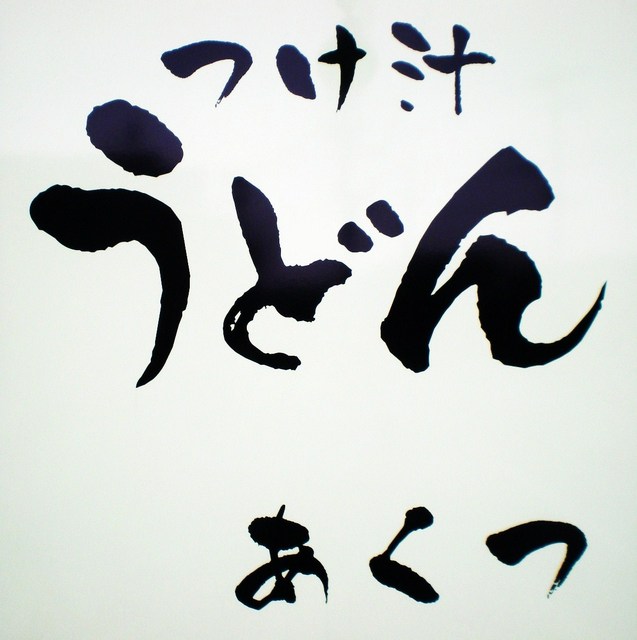 つけ汁
うどん
あくつ